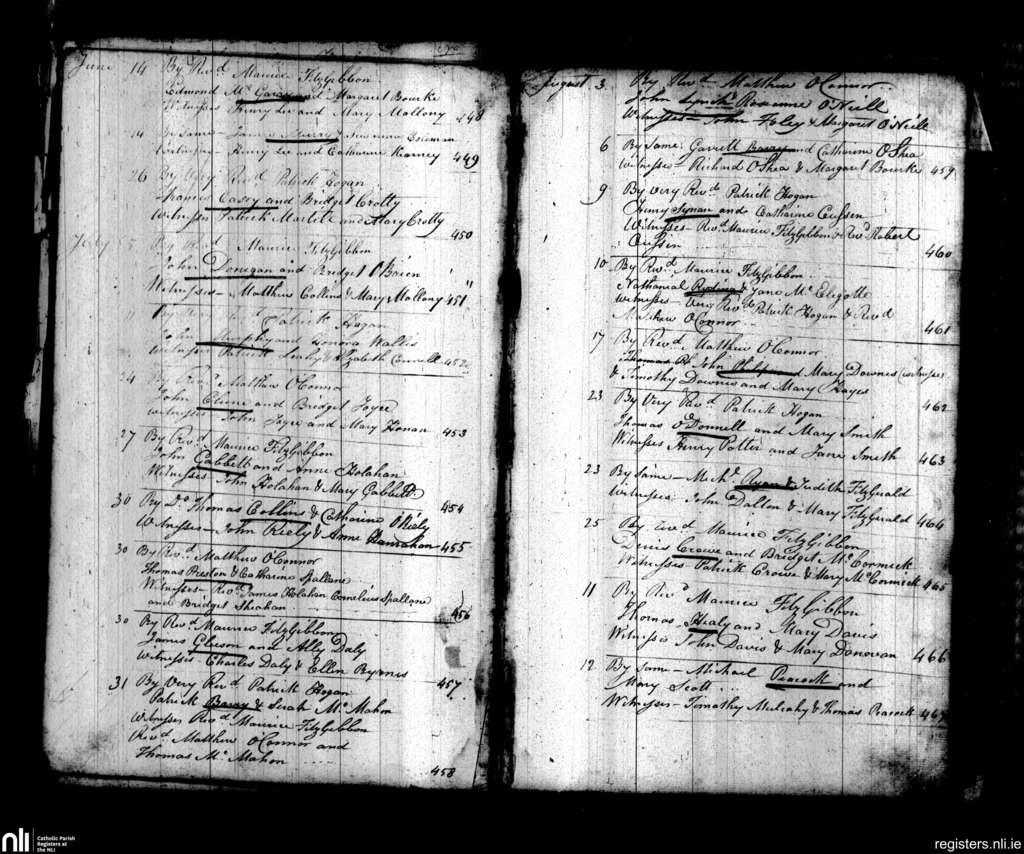 June 14 By Revd Maurice FitzGibbon
Edmond Mc Garry and Margaret Bourke
Witnesses Henry Lee and Mary Mallony 448
14 By Same
Witnesses - Henry Lee and Catharine Kearney 449
26 By Very Revd Patrick Hogan
Thomas Casey and Bridget Crotty
Witnesses Patrick Martell and Mary Crotty
450
July 5 By Revd Maurice FitzGibbon
John Donegan and Bridget O'Brien
Witnesses - Matthew Collins & Mary Mallony 451
11 By Very Revd Patrick Hogan
John Murphy and Honora Wallis
Witnesses Patrick Leahy & Elizabeth Connell 452
24 By Revd Matthew O'Connor
John Cleine and Bridget Joyce
Witnesses John Joyce and Mary Honan 453
27 By Revd Maurice FitzGibbon
John Gabbett and Anne Holahan
Witnesses John Holahan & Mary Gabbett
454
30 By Do Thomas Collins & Catharine O'Riely
Witnesses - John Riely & Anne Hanrahan 455
30 By Revd Matthew O'Connor
Thomas Preston & Catharine Spallane
Witnesses - Revd James Holahan Cornelius Spallane
and Bridget Sheahan 456
30 By Revd Maurice FitzGibbon
James Gleeson and Ally Daly
Witnesses - Charles Daly & Ellen Byrnes
457
31 By Very Revd Patrick Hogan
Patrick Barry & Sarah Mc Mahon
Witnesses Revd Maurice FitzGibbon
Revd Matthew O'Connor and
Thomas Mc Mahon
458
August 3 By Revd Matthew O'Connor
John Lynch Roxanne O'Neill
Witnesses - John Foley & Margaret O'Neill
6 By Same Garrett Barry and Catharine O'Shea
Witnesses - Richard O'Shea & Margaret Bourke 459
9 By Very Revd Patrick Hogan
Henry Synan and Catharine Cussen
Witnesses - Revd Maurice FitzGibbon & Revd Robert
Cussen 460
10 By Revd Maurice FitzGibbon
Nathanial & Jane Mc Elegotte
Witnesses - Very Revd Patrick Hogan & Revd
Matthew O'Connor 461
17 By Revd Matthew O'Connor
John Philip and Mary Downes (witnesses
& Timothy Downes and Mary Hayes
462
23 By Very Revd Patrick Hogan
Thomas O'Donnell and Mary Smith
Witnesses Henry Potter and Jane Smith 463
23 By Same - Michl Ryan & Judith FitzGerald
Witnesses John Dalton & Mary FitzGerald 464
25 By Revd Maurice FitzGibbon
Denis Crowe and Bridget Mc Cormick
Witnesses - Patrick Crowe & Mary Mc Cormick 465
11 By Revd Maurice FitzGibbon
Thomas Healy and Mary Davis
Witnesses John Davis & Mary Donovan 466
12 By Same - Michael Peacock and
Mary Scott
Witnesses - Timothy Mulcahy & Thomas Peacock 467
nli Catholic Parish
Registers at
the NLI
registers.nli.ie